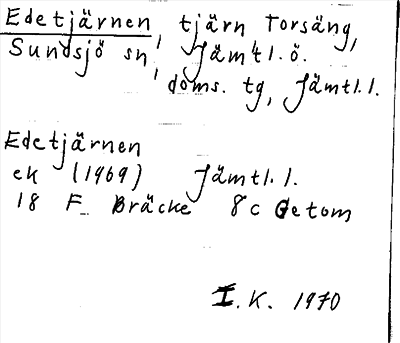 Edetjärnen, tjärn Torsäng,
Sundsjö sn, Jämtl.ö.
doms. tg, Jämtl.l.
Edetjärnen
ek (1969) Jämtl.l.
18 F Bräcke 8c Getom
I.K. 1970